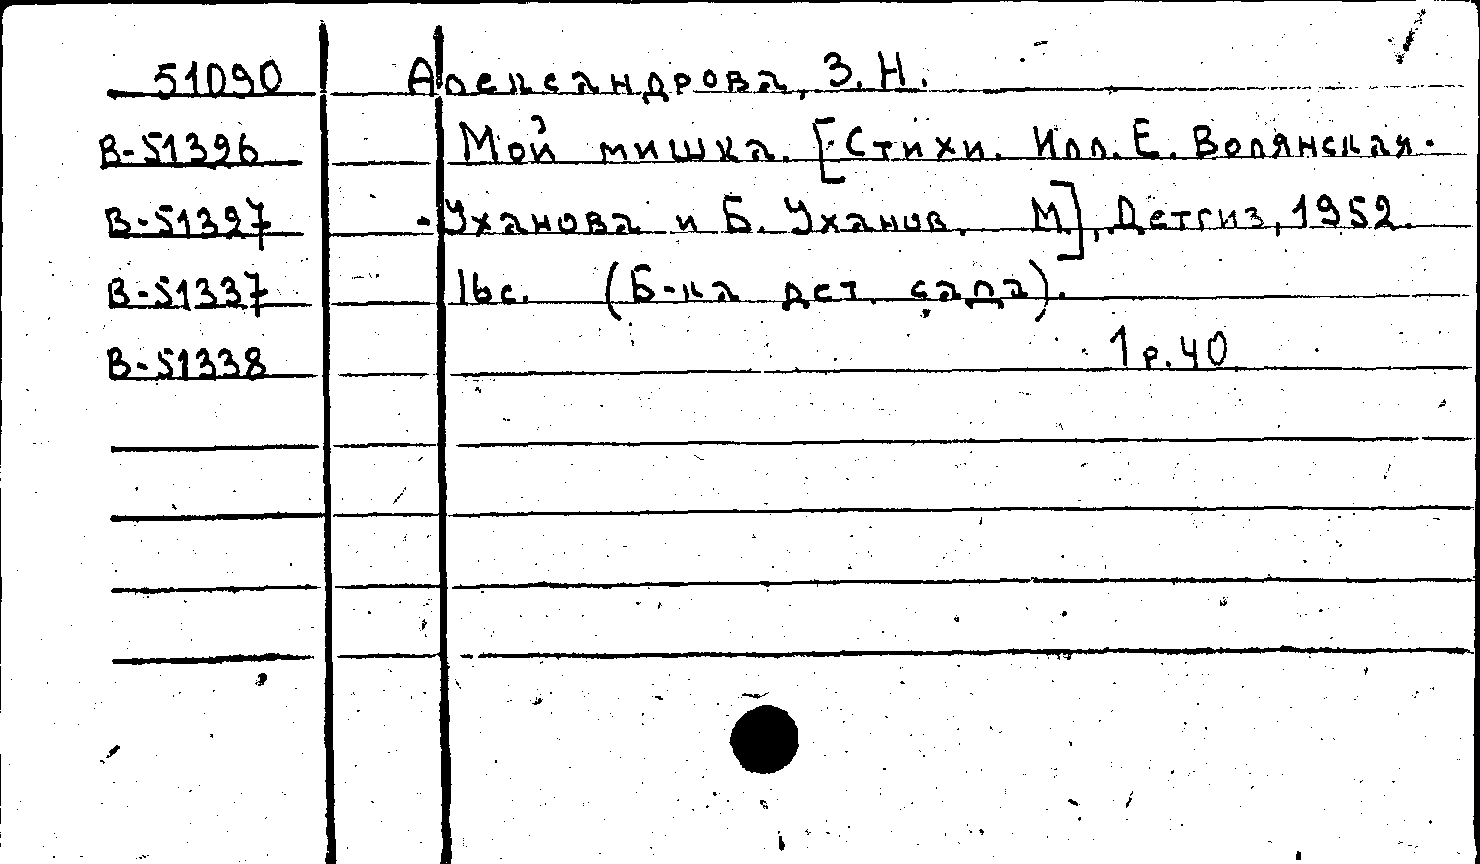 51090 Александрова, З. Н.
В-51396 Мой мишка. [Стихи. Илл. Е. Волянская-
В-51397 -Уханова и Б. Уханов. М], Детгиз, 1952.
В-51337 16 с. (Б-ка дет. сада).
В-51338 1 р. 40